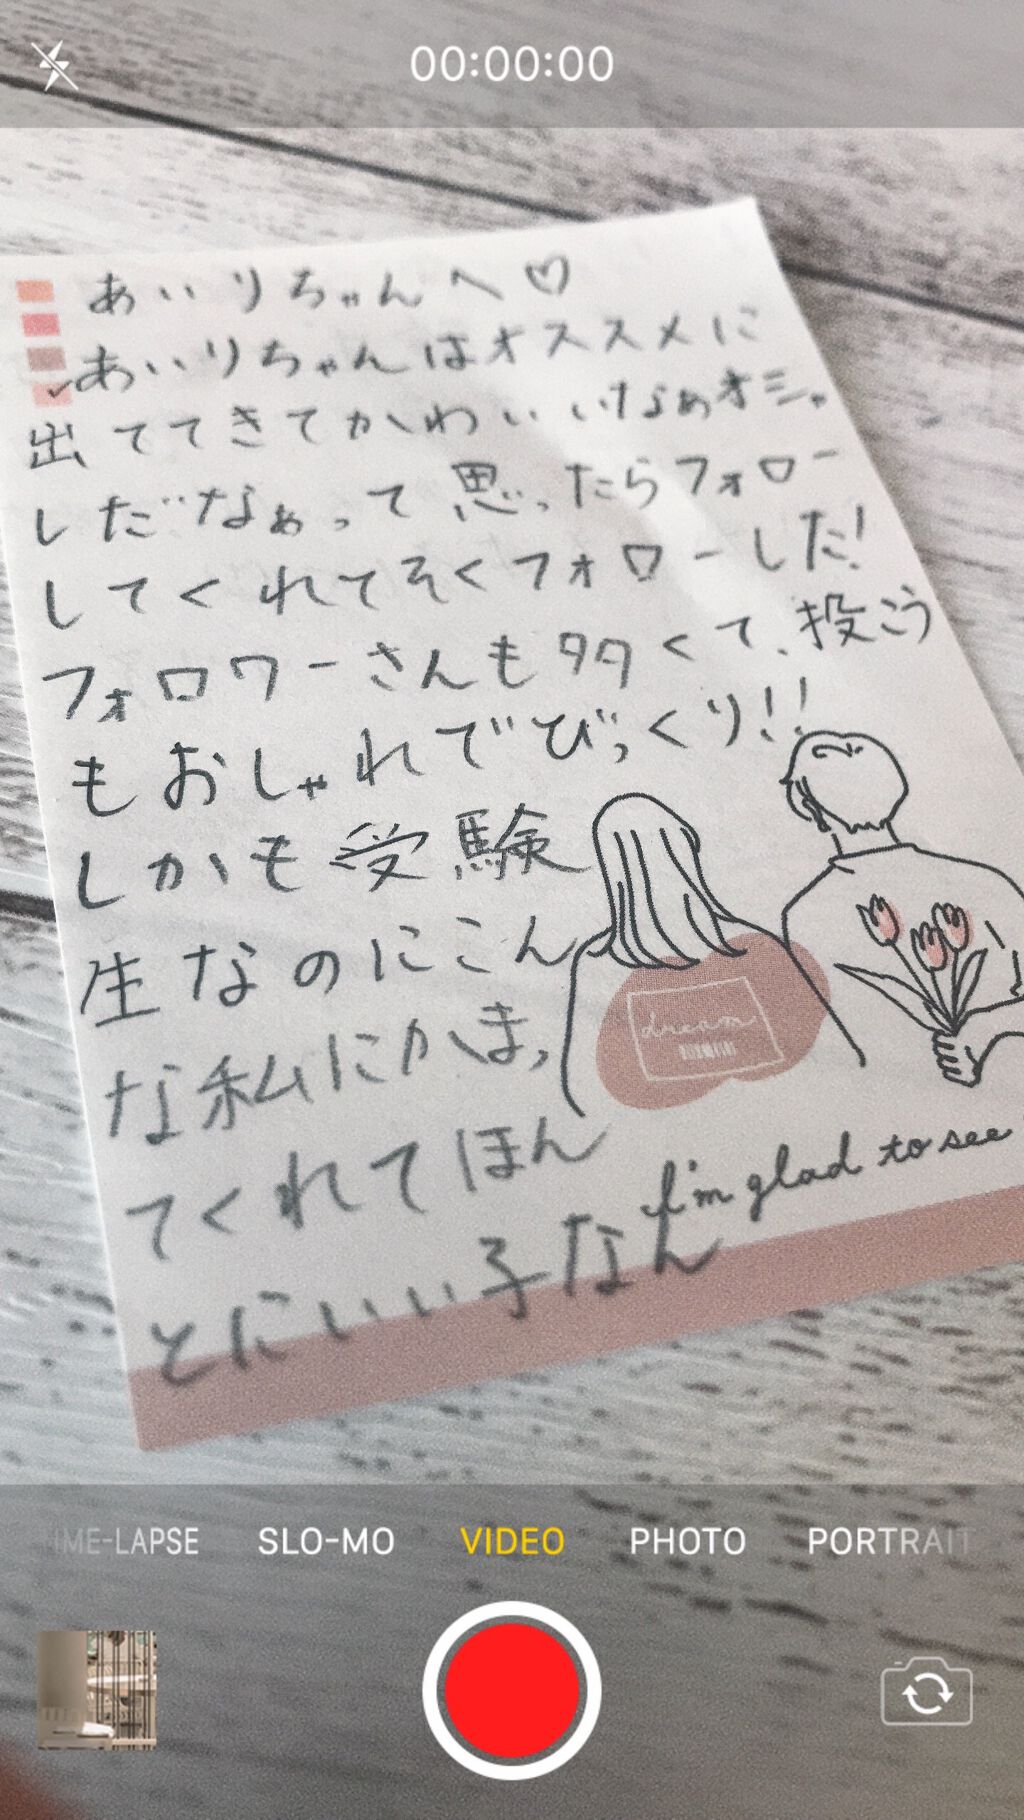 00:00:00
あいりちゃんへ♡
あいりちゃんはオススメに
出ててきてかわいいなぁオシャ
しだなぁって思ったらフォロー
してくれてそくフォローした!
フォロワーさんも多くて、投こう
もおしゃれでびっくり!!
しかも受験
生なのにこん
な私にかまっ
てくれてほん
とにいい子なん
dream
I'm glad to see
IME-LAPSE SLO-MO VIDEO PHOTO PORTRAIT